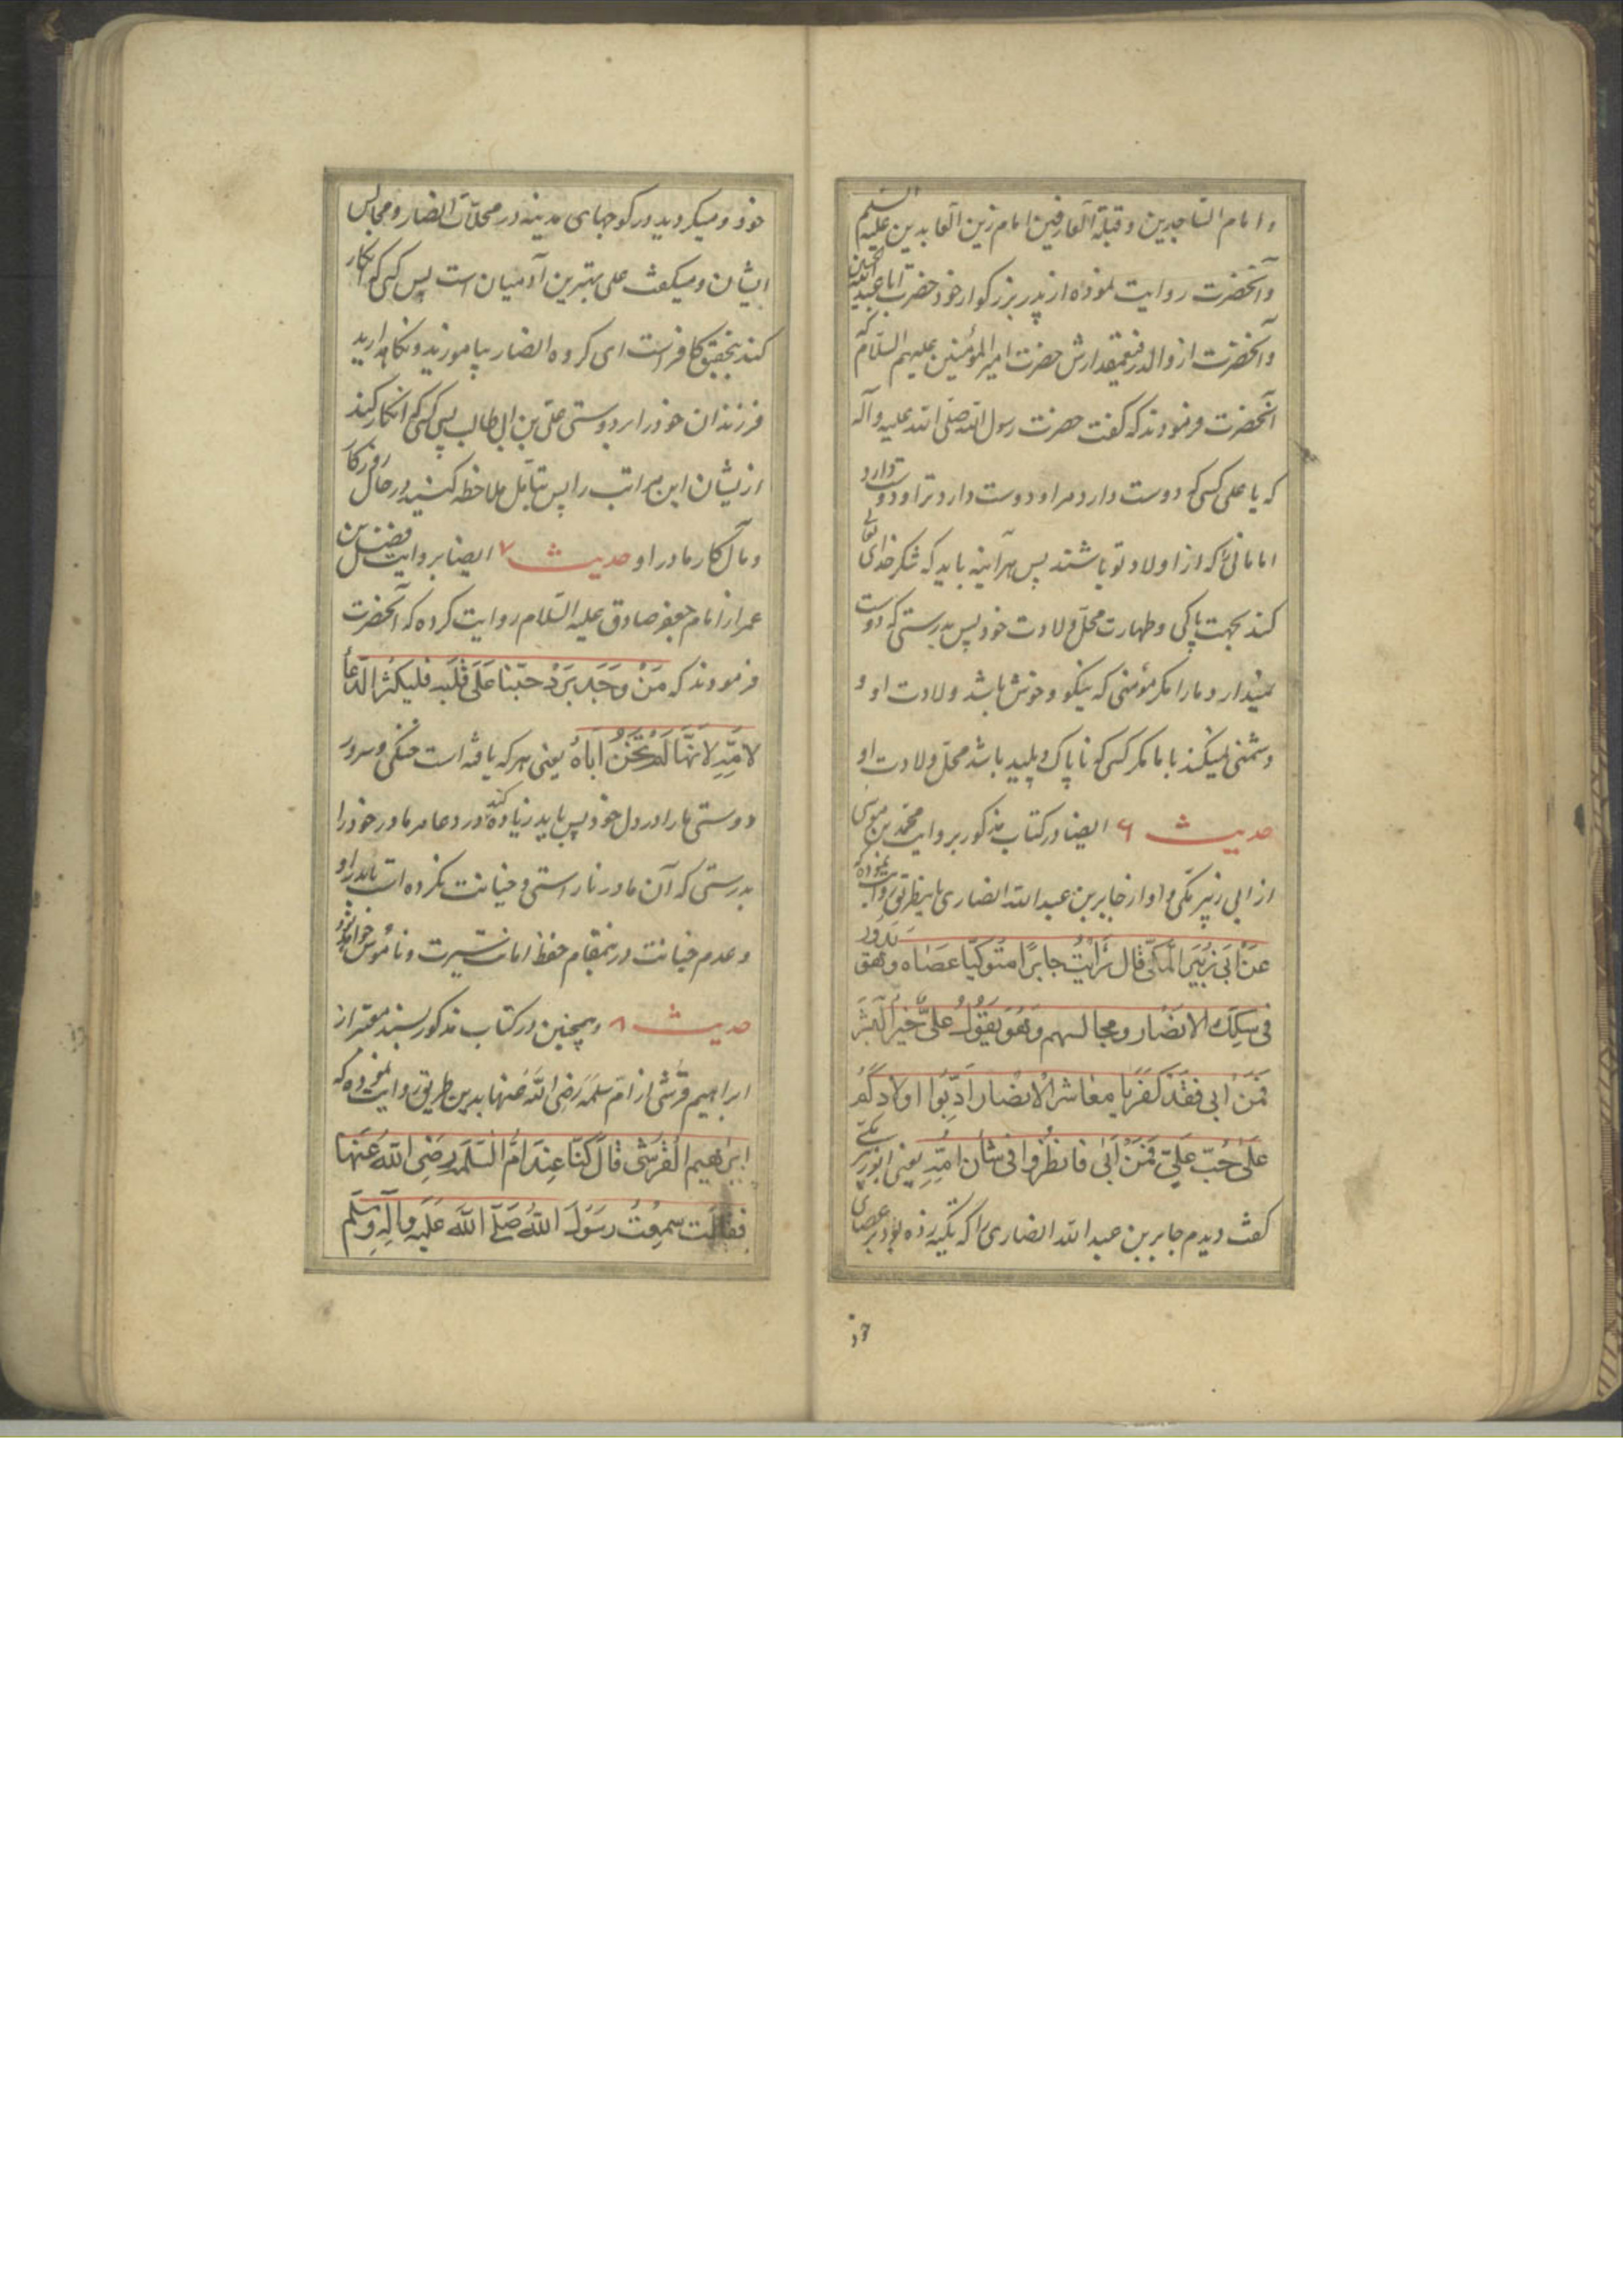 و امام الساجدین و قبلة العارفین امام زین العابدین علیه السلم
و آنحضرت روایت نموده از پدر بزرکوار خود حضرت ابا عبدالله الحسین
و آنحضرت از والد رفیعمقدارش حضرت امیر المؤمنین علیهم السلام که
آنحضرت فرمودند که کفت حضرت رسول الله صلی الله علیه و آله
که یا علی کسی که دوست دارد مرا و دوست دارد ترا و دوست دارد
امامانی را که از اولاد تو باشند پس هرآینه باید که شکر خدای تعالی
کند بجهت پاکی و طهارت محل ولادت خود پس بدرستی که دوست
نمیدارد ما را مکر مؤمنی که نیکو و خوش باشد ولادت او و
دشمنی نمیکند با ما مکر کسی که ناپاک و پلید باشد محل ولادت او
حدیث ۶ ایضا در کتاب مذکور بروایت محمد بن موسی
از ابی زبیر مکی و او از جابر بن عبد الله انصاری باینطریق روایت نموده که
عَنْ اَبی زُبَیرَ المَکّی قال رَاَیْتُ جابرًا مُتَوکّیًا عَصَاه وَ هُوَ یَدُورُ
فی سِکَكِ الانصَار و مجالسهم وَ هُوَ یَقُولُ عَلیٌّ خَیرُ البَشَر
فَمَنْ اَبی فقَدْ کَفَرَ یا معَاشرَ الْانصَار اَدِّبُوا اولادَکُم
عَلی حُبّ عَلیّ فَمَنْ اَبی فانظُرُوا فی شَأن اُمِّهِ یعنی ابو زبیر مکّی
کفت دیدم جابر بن عبد الله انصاری را که تکیه زده بود بر عصای
خود
خود و میکردید در کوچهای مدینه در محلات انصار و مجالس
ایشان و میکفت علی بهترین آدمیان است پس کسی که انکار
کند بتحقیق کافر است ای کروه انصار بیاموزید و نکاهدارید
فرزندان خود را بر دوستی علی بن ابی طالب پس کسی که انکار کند
ازیشان این مراتب را پس بتأمل ملاحظه کنید در حال روزکار
و مآل کار مادر او حدیث ۷ ایضا بروایت مفضل بن
عمر از امام جعفر صادق علیه السلام روایت کرده که آنحضرت
فرمودند که مَنْ وَجَدَ بَرْدَ حُبِّنا عَلی قَلبِه فَلیکثر الدُّعاءَ
لاُمِّهِ لاَنَّهَا لَم تَخُنْ اَبَاهُ یعنی هر که یافته است خنکی و سرور
دوستی ما را در دل خود پس باید زیاده کند در دعا مر مادر خود را
بدرستی که آن مادر ناراستی و خیانت نکرده است با پدر او
و عدم خیانت درینمقام حفظ امانت سیرت و ناموس خواهد بود
حدیث ۸ و همچنین در کتاب مذکور بسند معتبر از
ابراهیم قرشی از ام سلمه رَضی اللهُ عَنها بدین طریق روایت نموده که
ابرٰهیم القُرَشی قالَ کُنّا عِندَ اُمّ السَّلَمَه رضِی اللهُ عَنهَا
فقالت سمِعْتُ رسُولَ اللهُ صَلَّی اللهَ عَلَیهِ و آلِهِ وسَلّم